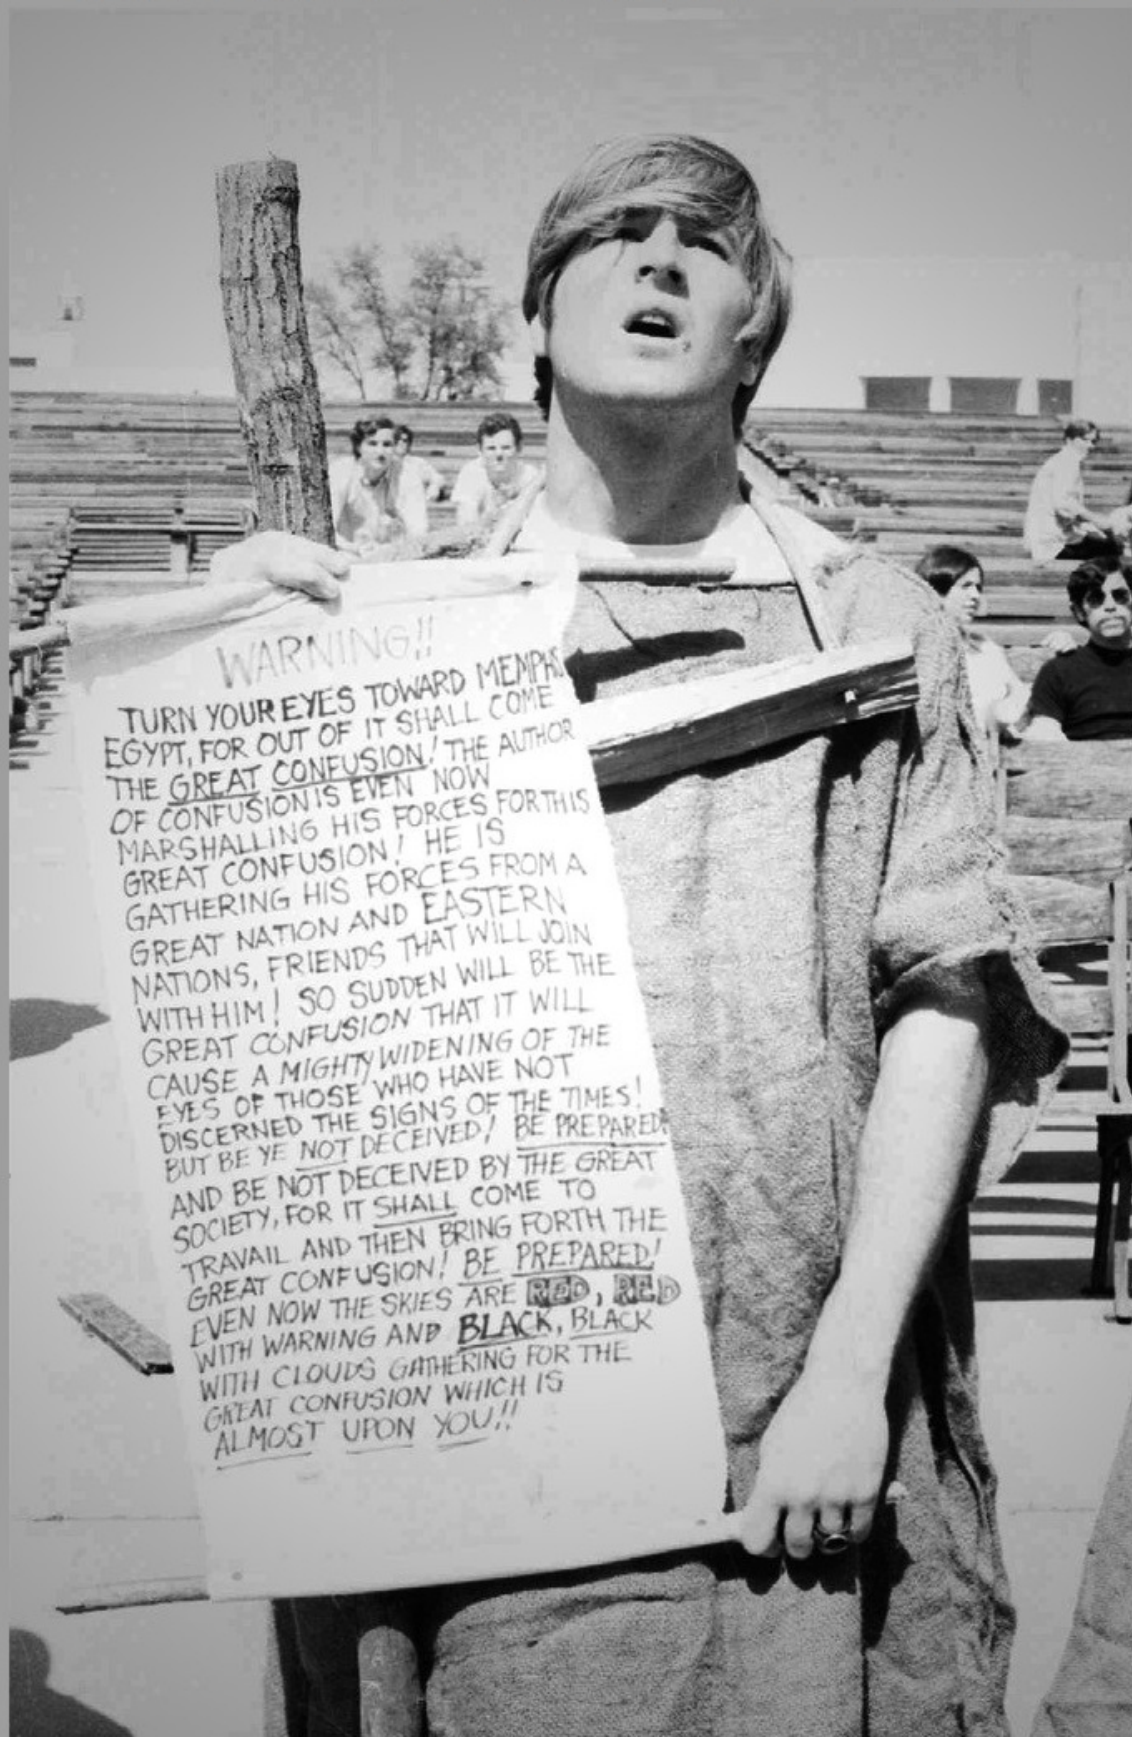 WARNING!!
TURN YOUR EYES TOWARD MEMPHIS
EGYPT, FOR OUT OF IT SHALL COME
THE GREAT CONFUSION! THE AUTHOR
OF CONFUSION IS EVEN NOW
MARSHALLING HIS FORCES FOR THIS
GREAT CONFUSION! HE IS
GATHERING HIS FORCES FROM A
GREAT NATION AND EASTERN
NATIONS, FRIENDS THAT WILL JOIN
WITH HIM! SO SUDDEN WILL BE THE
GREAT CONFUSION THAT IT WILL
CAUSE A MIGHTY WIDENING OF THE
EYES OF THOSE WHO HAVE NOT
DISCERNED THE SIGNS OF THE TIMES!
BUT BE YE NOT DECEIVED! BE PREPARED!
AND BE NOT DECEIVED BY THE GREAT
SOCIETY, FOR IT SHALL COME TO
TRAVAIL AND THEN BRING FORTH THE
GREAT CONFUSION! BE PREPARED!
EVEN NOW THE SKIES ARE RED, RED
WITH WARNING AND BLACK, BLACK
WITH CLOUDS GATHERING FOR THE
GREAT CONFUSION WHICH IS
ALMOST UPON YOU!!